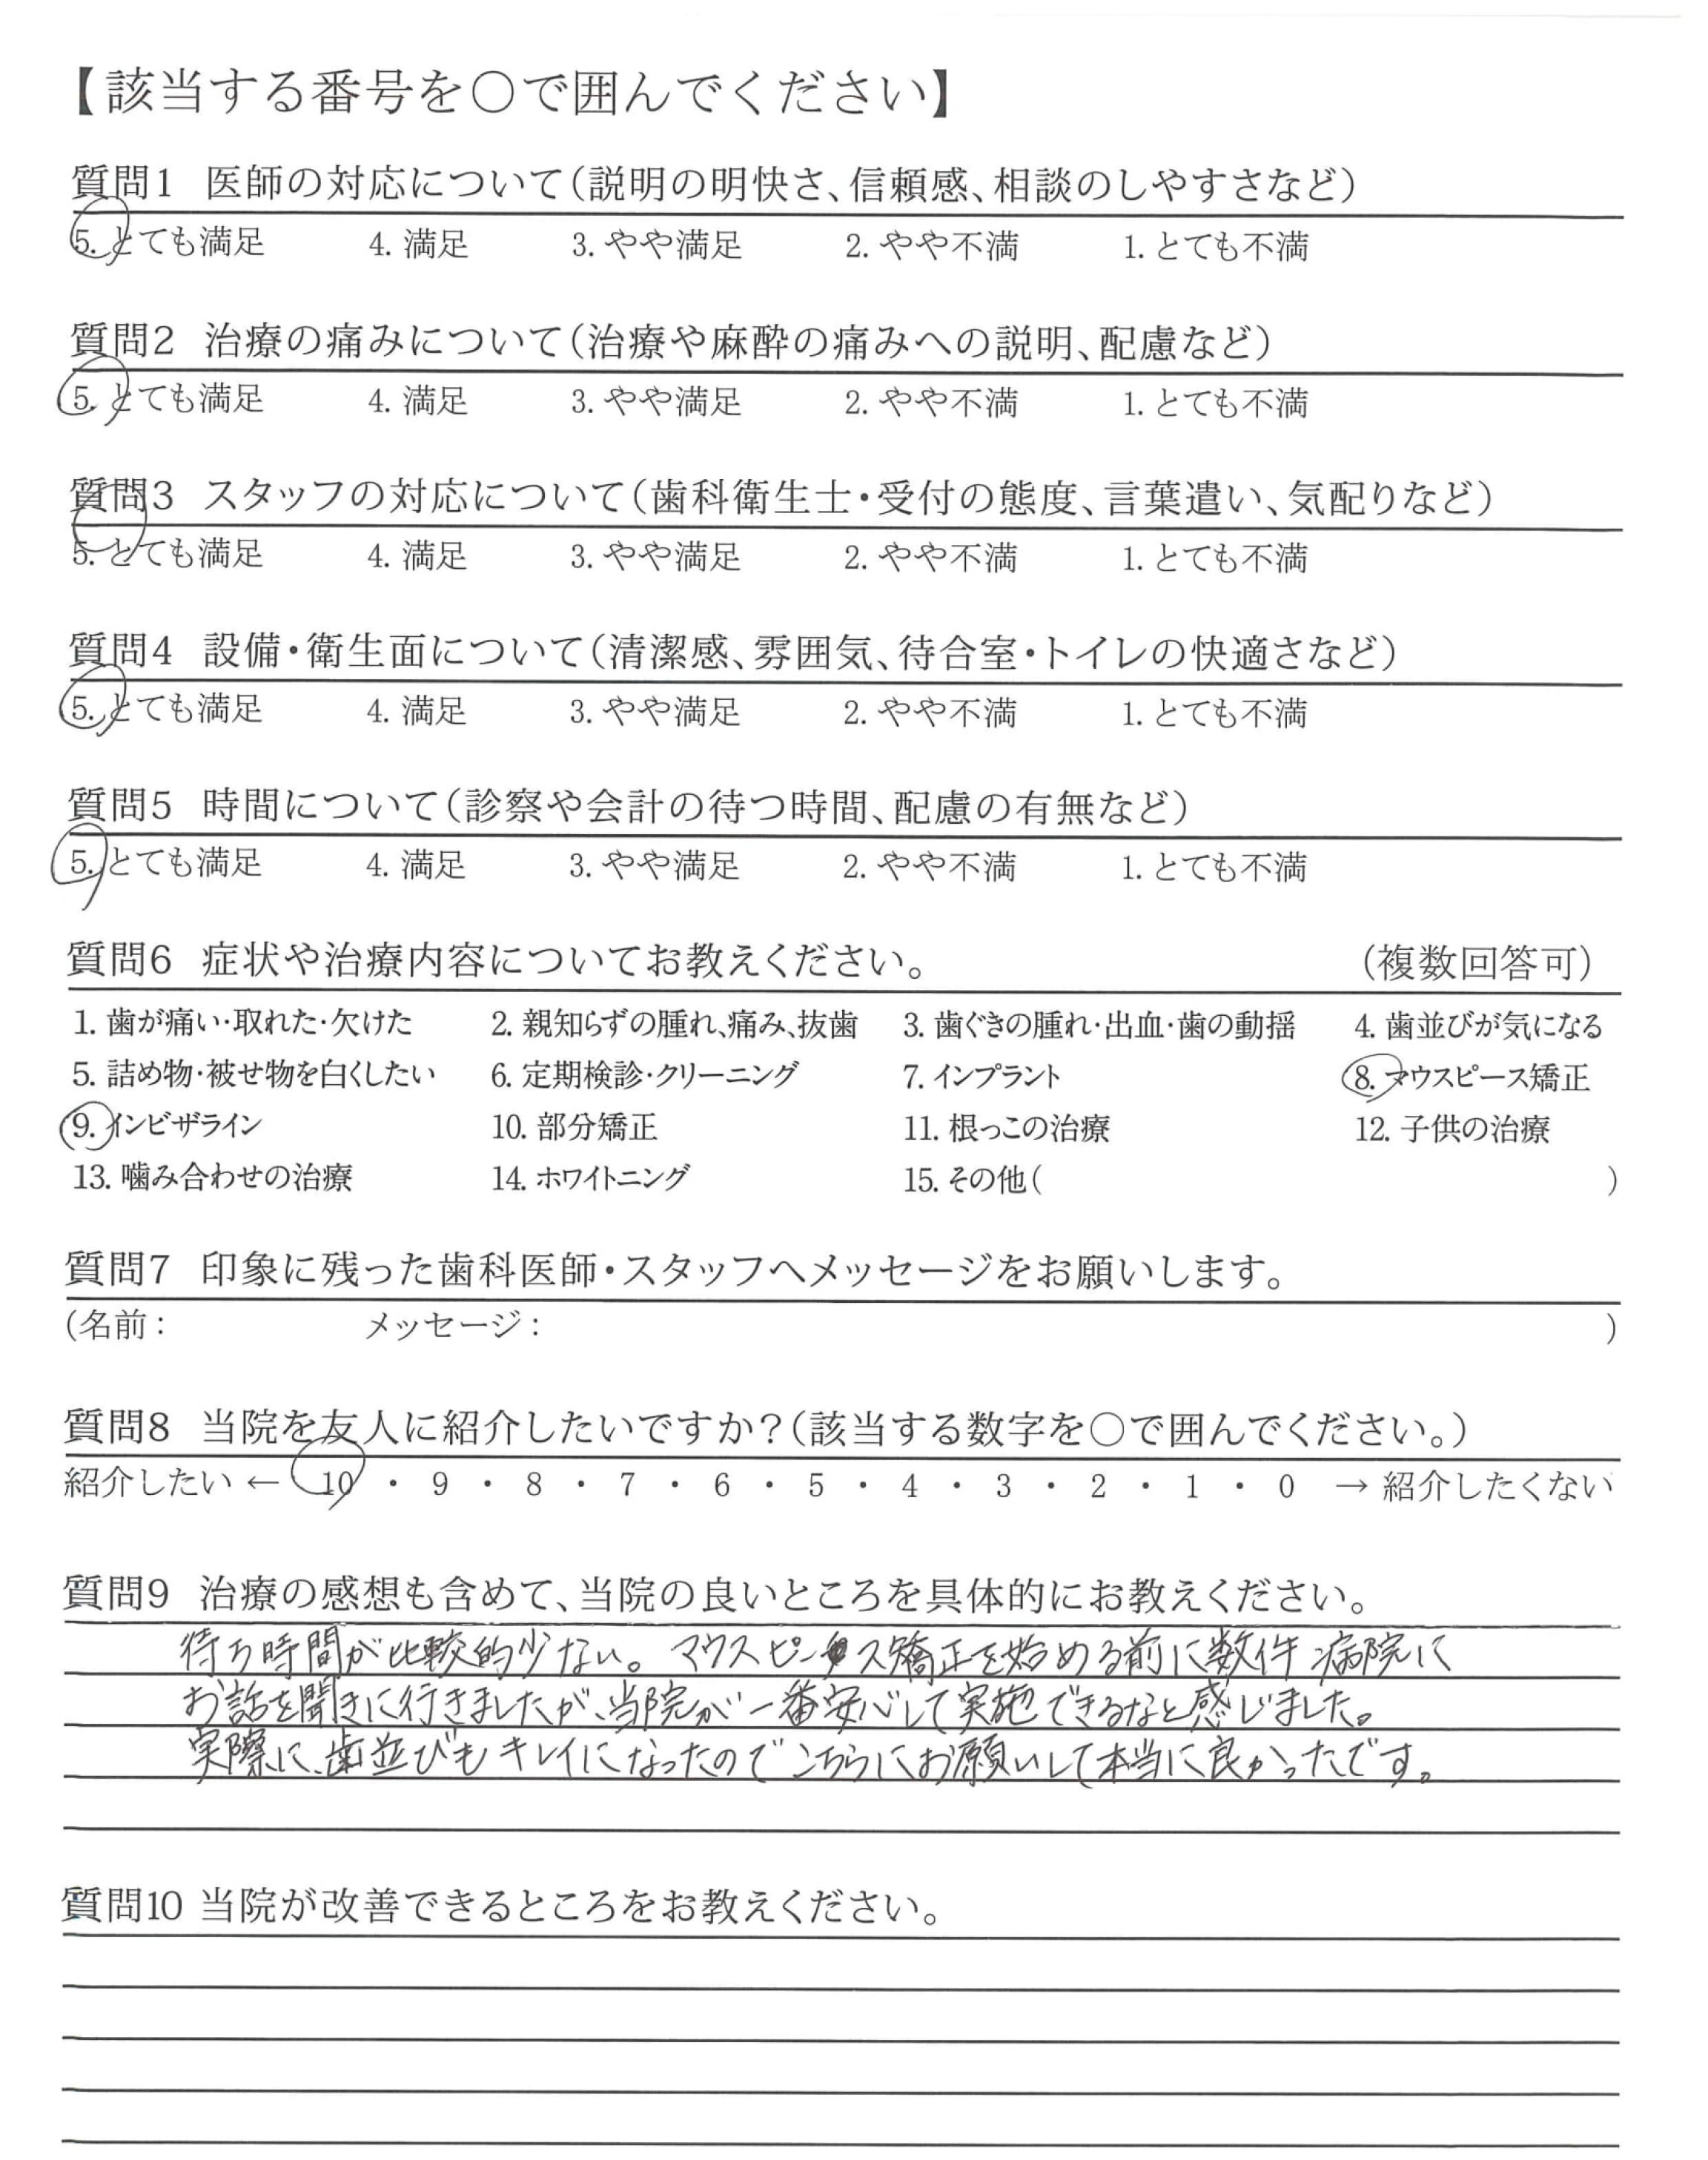 【該当する番号を○で囲んでください】
質問1 医師の対応について(説明の明快さ、信頼感、相談のしやすさなど)
5. とても満足 4. 満足 3. やや満足 2. やや不満 1. とても不満
質問2 治療の痛みについて(治療や麻酔の痛みへの説明、配慮など)
5. とても満足 4. 満足 3. やや満足 2. やや不満 1. とても不満
質問3 スタッフの対応について(歯科衛生士・受付の態度、言葉遣い、気配りなど)
5. とても満足 4. 満足 3. やや満足 2. やや不満 1. とても不満
質問4 設備・衛生面について(清潔感、雰囲気、待合室・トイレの快適さなど)
5. とても満足 4. 満足 3. やや満足 2. やや不満 1. とても不満
質問5 時間について(診察や会計の待つ時間、配慮の有無など)
5. とても満足 4. 満足 3. やや満足 2. やや不満 1. とても不満
質問6 症状や治療内容についてお教えください。 (複数回答可)
1. 歯が痛い・取れた・欠けた 2. 親知らずの腫れ、痛み、抜歯 3. 歯ぐきの腫れ・出血・歯の動揺 4. 歯並びが気になる
5. 詰め物・被せ物を白くしたい 6. 定期検診・クリーニング 7. インプラント 8. マウスピース矯正
9. インビザライン 10. 部分矯正 11. 根っこの治療 12. 子供の治療
13. 噛み合わせの治療 14. ホワイトニング 15. その他( )
質問7 印象に残った歯科医師・スタッフへメッセージをお願いします。
(名前: メッセージ: )
質問8 当院を友人に紹介したいですか?(該当する数字を○で囲んでください。)
紹介したい ← 10 ・ 9 ・ 8 ・ 7 ・ 6 ・ 5 ・ 4 ・ 3 ・ 2 ・ 1 ・ 0 → 紹介したくない
質問9 治療の感想も含めて、当院の良いところを具体的にお教えください。
待ち時間が比較的少ない。マウスピース矯正を始める前に数件病院に
お話を聞きに行きましたが、当院が一番安心して実施できるなと感じました。
実際に、歯並びもキレイになったのでこちらにお願いして本当に良かったです。
質問10 当院が改善できるところをお教えください。